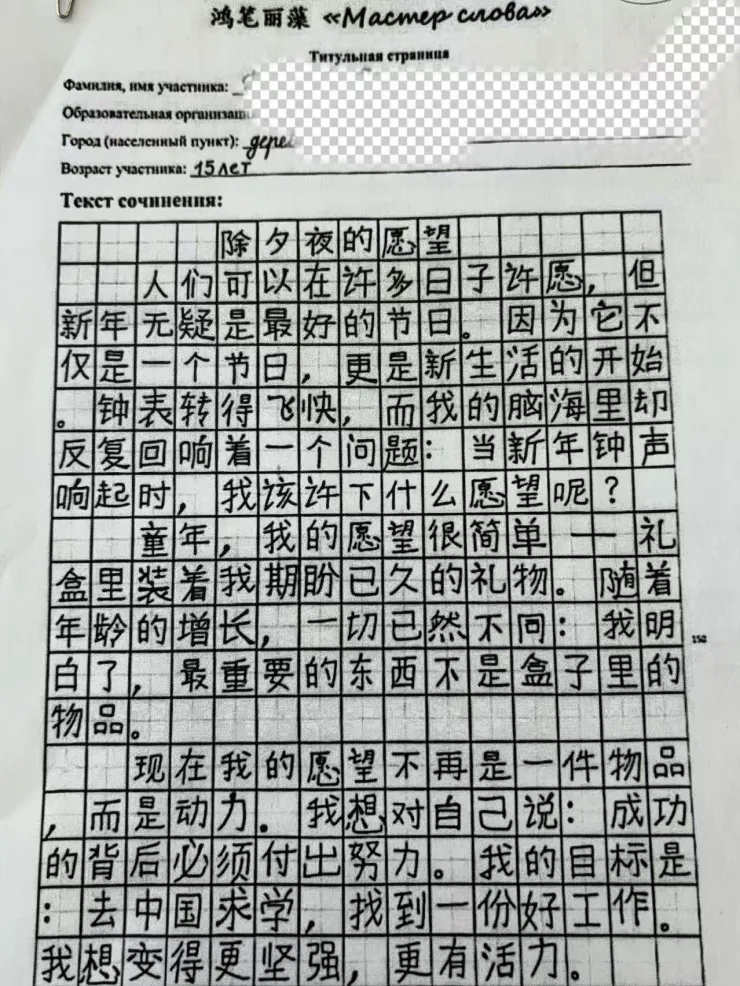 鸿笔丽藻 «Мастер слова»
Титульная страница
Фамилия, имя участника:
Образовательная организаци
Город (населенный пункт): дере
Возраст участника: 15 лет
Текст сочинения:
除夕夜的愿望
人们可以在许多日子许愿，但
新年无疑是最好的节日。因为它不
仅是一个节日，更是新生活的开始
。钟表转得飞快，而我的脑海里却
反复回响着一个问题：当新年钟声
响起时，我该许下什么愿望呢？
童年，我的愿望很简单——礼
盒里装着我期盼已久的礼物。随着
年龄的增长，一切已然不同：我明
150
白了，最重要的东西不是盒子里的
物品。
现在我的愿望不再是一件物品
，而是动力。我想对自己说：成功
的背后必须付出努力。我的目标是
：去中国求学，找到一份好工作。
我想变得更坚强，更有活力。